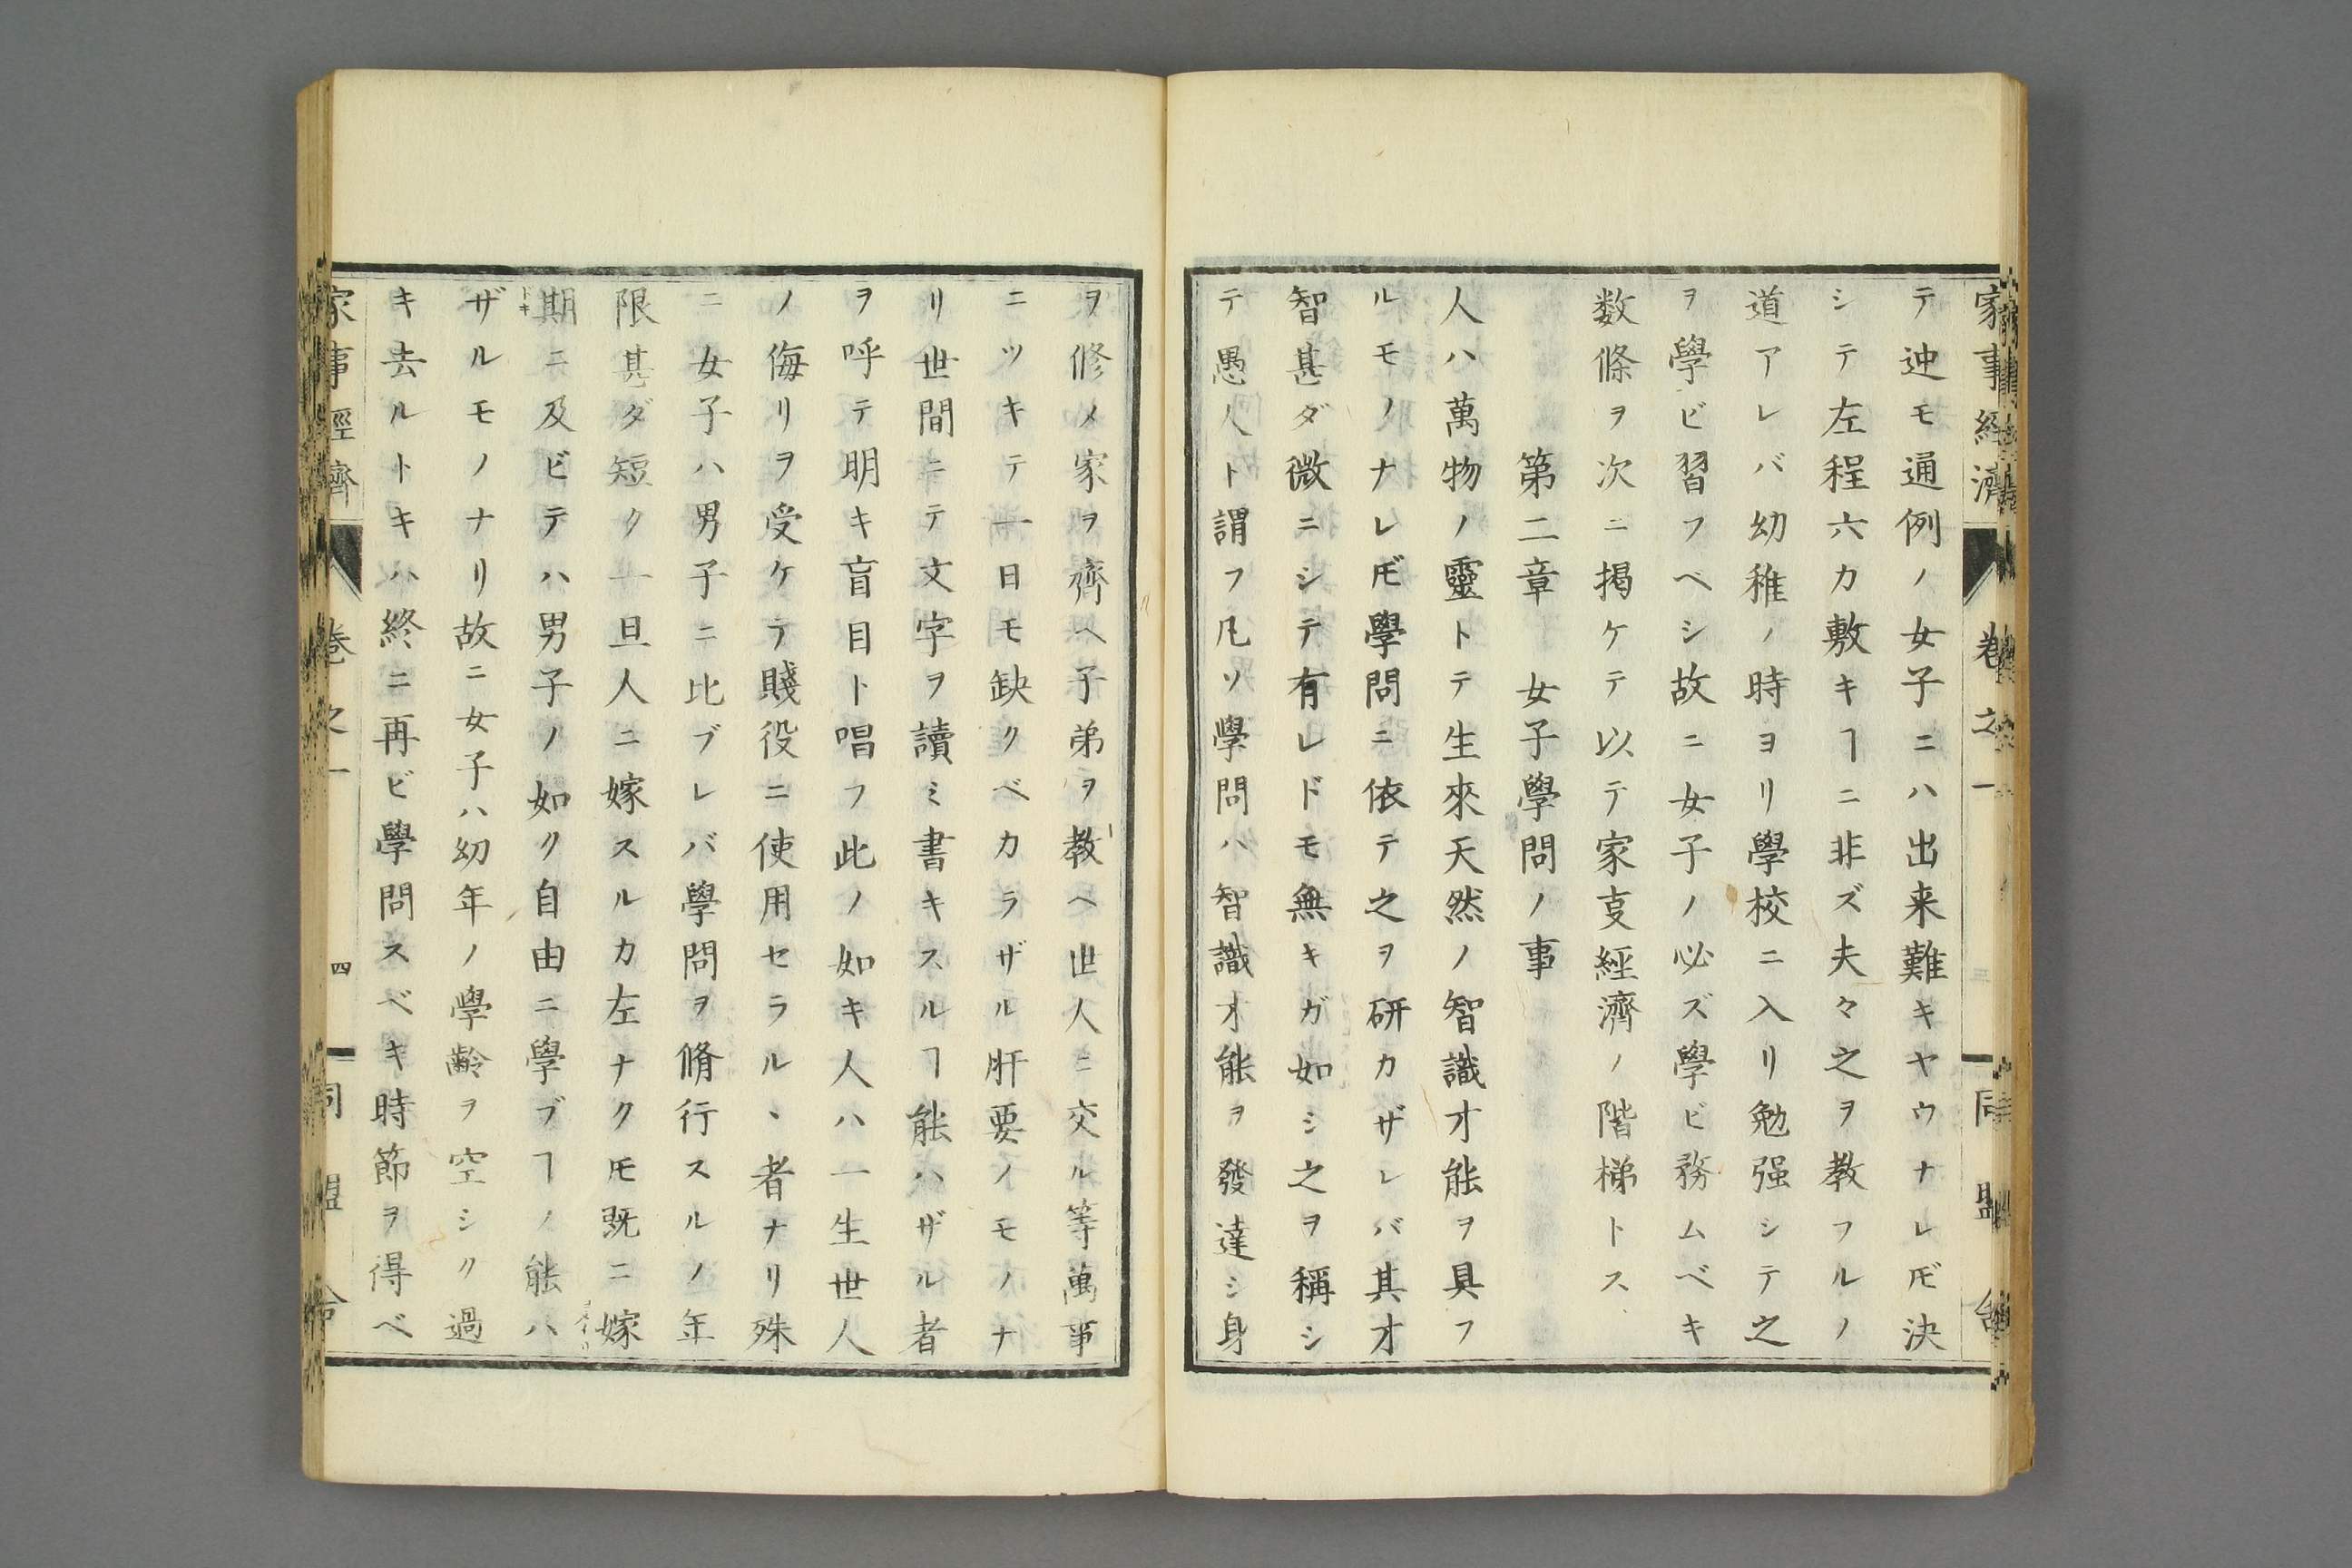 家事經濟 卷之一 同盟舍
テ迚モ通例ノ女子ニハ出来難キヤウナレ𪜈決
シテ左程六カ敷キヿニ非ズ夫々之ヲ教フルノ
道アレバ幼稚ノ時ヨリ學校ニ入リ勉强シテ之
ヲ學ビ習フベシ故ニ女子ノ必ズ學ビ務ムベキ
数條ヲ次ニ掲ケテ以テ家㕝經濟ノ階梯トス
第二章 女子學問ノ事
人ハ萬物ノ靈トテ生來天然ノ智識才能ヲ具フ
ルモノナレ𪜈學問ニ依テ之ヲ研カザレバ其才
智甚ダ微ニシテ有レドモ無キガ如シ之ヲ稱シ
テ愚人ト謂フ凡ソ學問ハ智識才能ヲ發達シ身
ヲ修メ家ヲ齊ヘ子弟ヲ教ヘ世人ニ交ル等萬事
ニツキテ一日モ缺クベカラザル肝要ノモノナ
リ世間ニテ文字ヲ讀ミ書キスルヿ能ハザル者
ヲ呼テ明キ盲目ト唱フ此ノ如キ人ハ一生世人
ノ侮リヲ受ケテ賤役ニ使用セラルヽ者ナリ殊
ニ女子ハ男子ニ比ブレバ學問ヲ脩行スルノ年
限甚ダ短ク一旦人ニ嫁スルカ左ナク𪜈既ニ嫁
期ニ及ビテハ男子ノ如ク自由ニ學ブヿノ能ハ
ザルモノナリ故ニ女子ハ幼年ノ學齡ヲ空シク過
キ去ルトキハ終ニ再ビ學問スベキ時節ヲ得ベ
家事經濟 卷之一 四 同盟舍